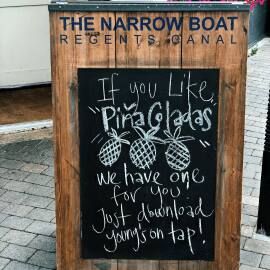 THE NARROW BOAT
REGENTS CANAL
If you Like
"Piña Coladas
we have one
for you
Just download
young's on tap!